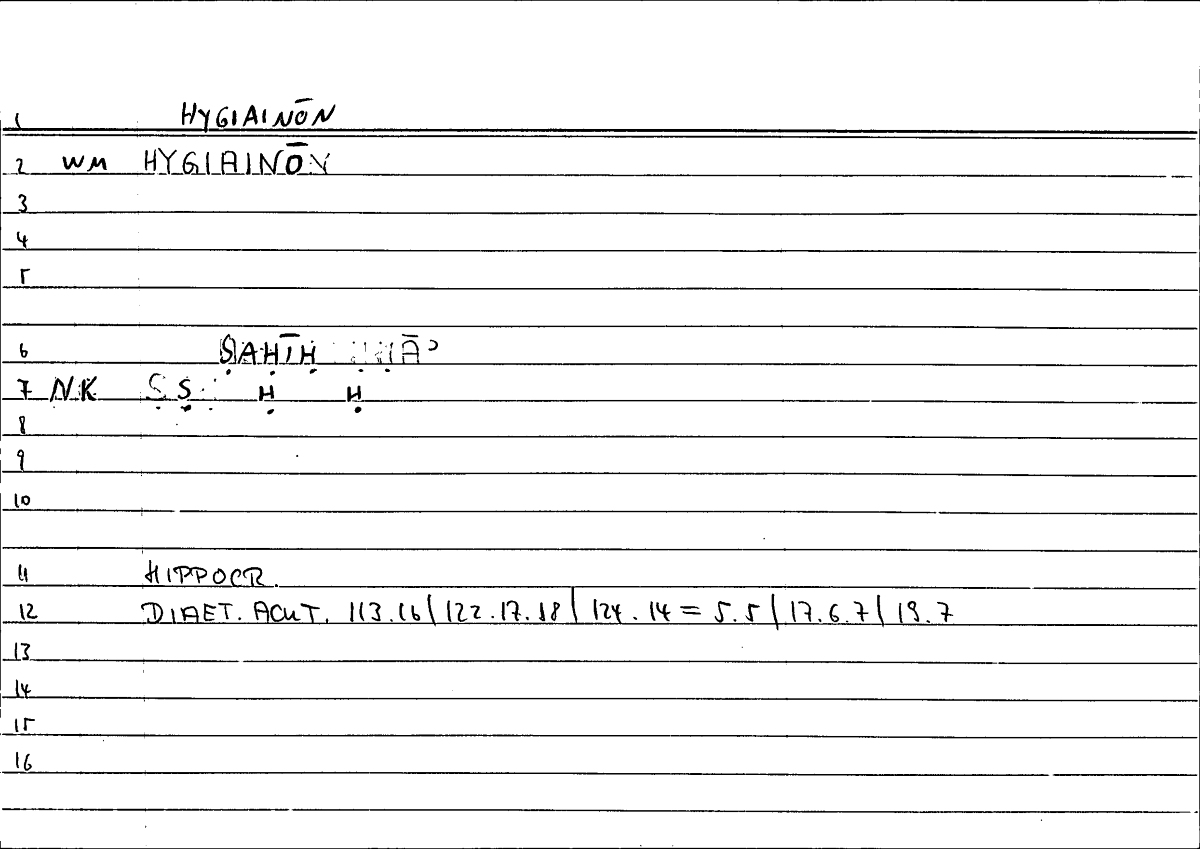 1 HYGIAINŌN
2 WM HYGIAINŌN
3
4
5
6 ṢAḤĪḤ
7 NK Ṣ Ṣ Ḥ Ḥ
8
9
10
11 HIPPOCR.
12 DIAET. ACUT. 113.16 | 122.17.18 | 124.14 = 5.5 | 17.6.7 | 19.7
13
14
15
16